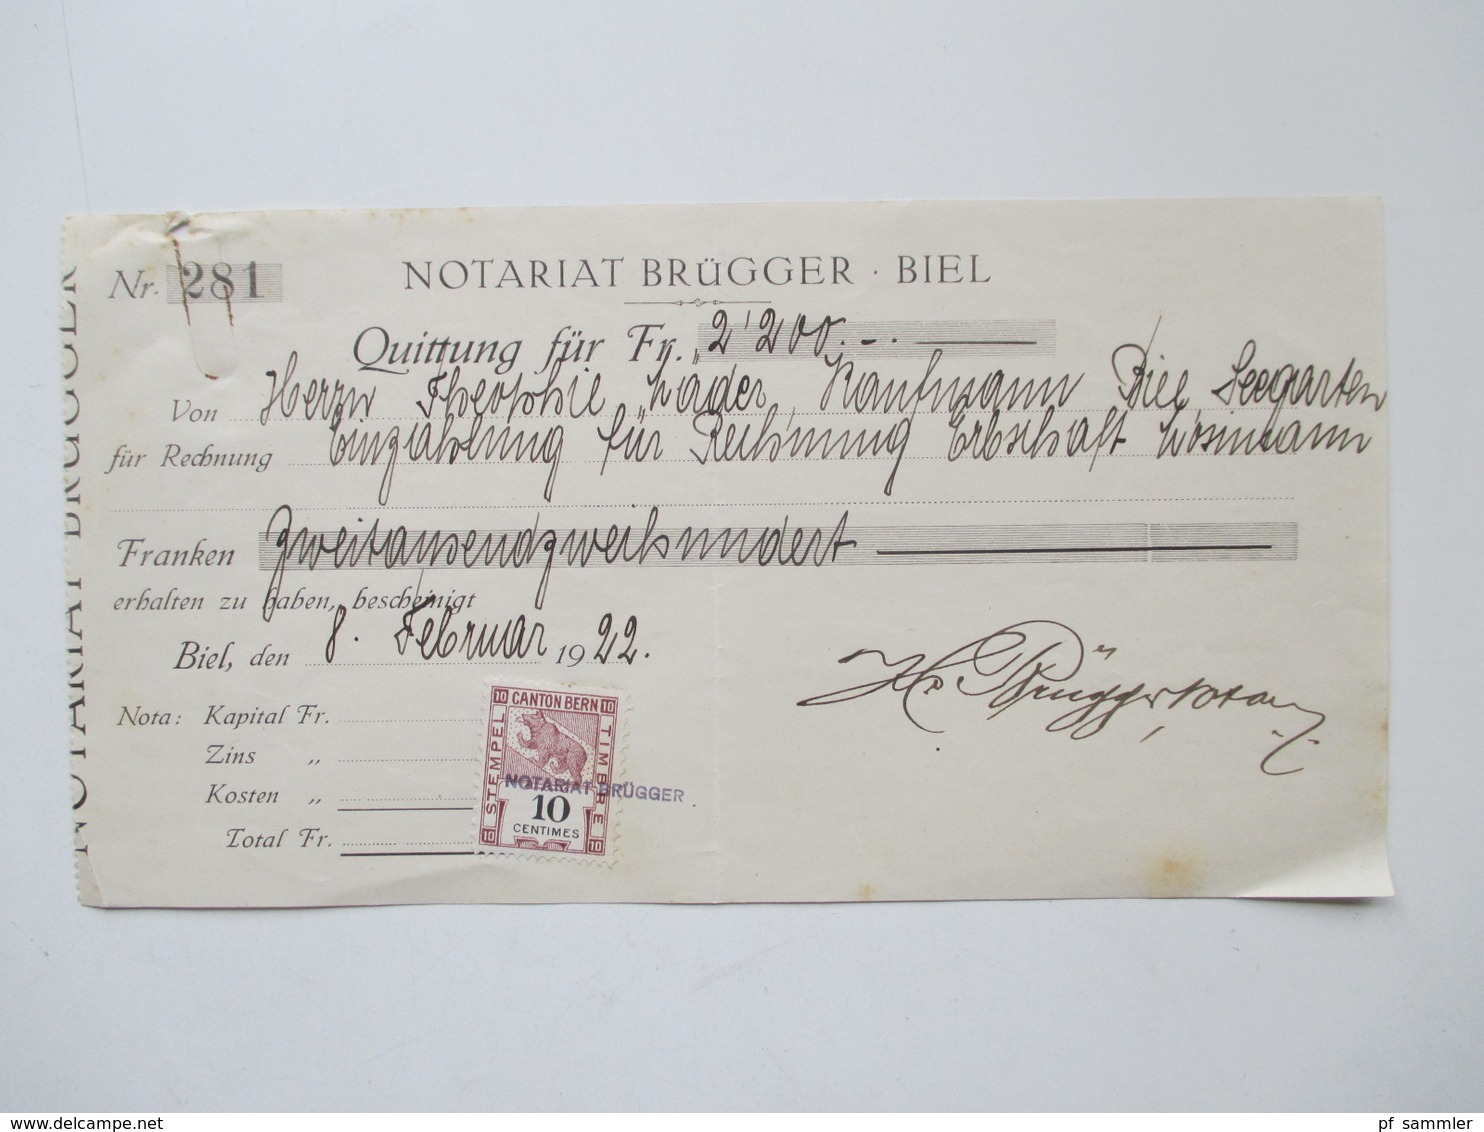 NOTARIAT BRÜGGER
Nr. 281
NOTARIAT BRÜGGER · BIEL
Quittung für Fr. 2'200.--
Von Herrn Theophil Mäder, Kaufmann Biel, Seegarten
für Rechnung Einzahlung für Rechnung Erbschaft
Franken Zweitausendzweihundert
erhalten zu haben, bescheinigt
Biel, den 8. Februar 1922.
H. Brügger, Notar
Nota: Kapital Fr.
Zins „
Kosten „
Total Fr.
10 CANTON BERN 10
STEMPEL
TIMBRE
NOTARIAT BRÜGGER
10
CENTIMES
10 10
www.delcampe.net
pf_sammler